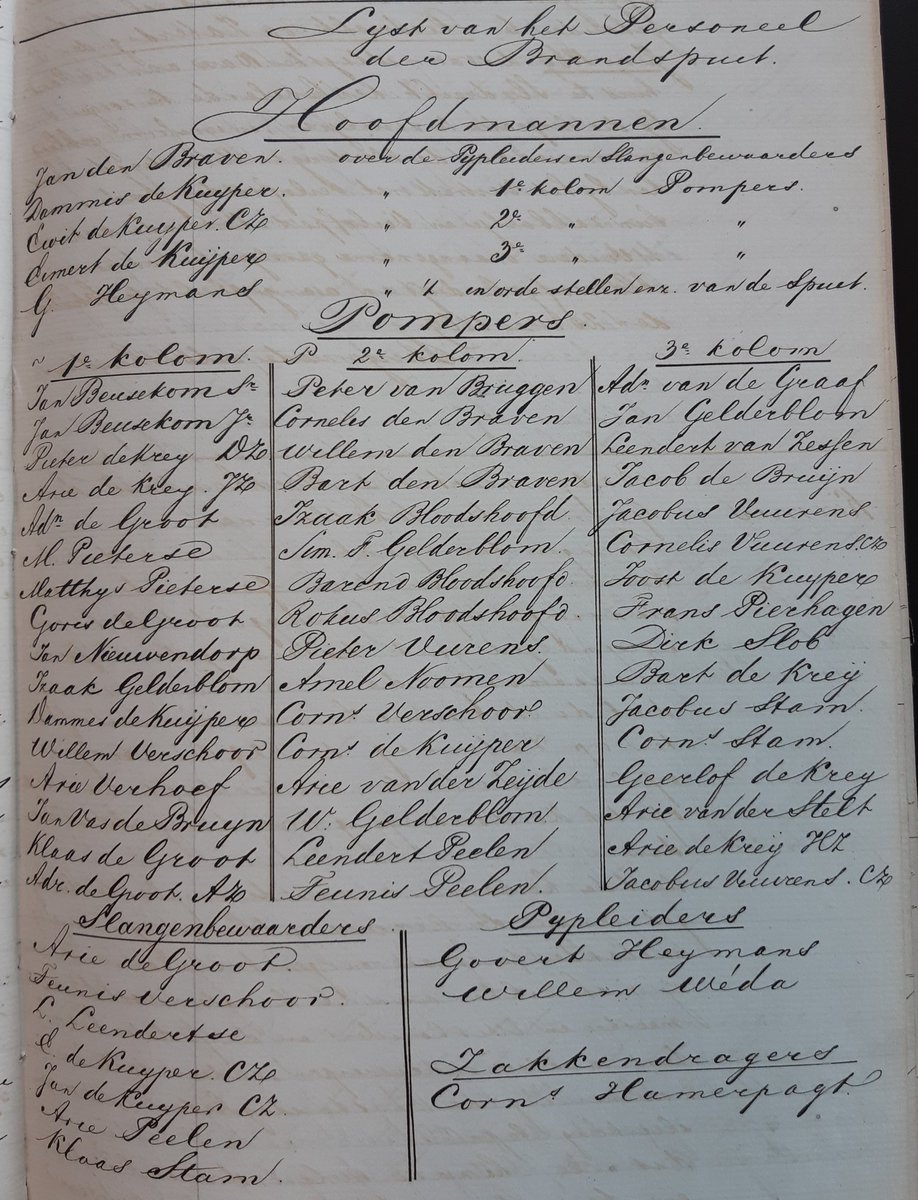 Lyst van het Personeel
der Brandspuit.
Hoofdmannen
Jan den Braven. over de Pypleiders en Slangenbewaarders
Dammis de Kuyper. „ 1e kolom Pompers.
Ewit de Kuyper. CZ „ 2e „ „
Eimert de Kuijper „ 3e „ „
G. Heymans „ 't in orde stellen enz. van de Spuit.
Pompers.
1e kolom.
Jan Beusekom Sr
Jan Beusekom Jr
Pieter de Krey DZ
Arie de Krey. JZ
Adn de Groot
M. Pieterse
Matthys Pieterse
Goris de Groot
Jan Nieuwendorp
Izaak Gelderblom
Dammes de Kuijper
Willem Verschoor
Arie Verhoef
Jan Vas de Bruyn
Klaas de Groot
Adr. de Groot. AZ
P 2e kolom.
Peter van Bruggen
Cornelis den Braven
Willem den Braven
Bart den Braven
Izaak Bloodshoofd.
Sim. T. Gelderblom.
Barend Bloodshoofd.
Rokus Bloodshoofd.
Pieter Vurens.
Amel Noomen
Corns Verschoor.
Corns de Kuyper
Arie van der Zeyde
W. Gelderblom.
Leendert Peelen
Teunis Peelen.
3e kolom
Adn van de Graaf
Jan Gelderblom
Leendert van Zessen
Jacob de Bruijn
Jacobus Vuurens
Cornelis Vuurens. CZ
Joost de Kuyper
Frans Pierhagen
Dirk Slob
Bart de Kreij
Jacobus Stam.
Corns Stam.
Geerlof de Krey
Arie van der Stelt
Arie de Kreij HZ
Jacobus Vuurens. CZ
Slangenbewaarders
Arie de Groot.
Teunis Verschoor.
L. Leendertse
E. de Kuyper. CZ
Jan de Kuyper CZ.
Arie Peelen
Klaas Stam
Pypleiders
Govert Heymans
Willem Wéda
Zakkendragers
Corns Hamerpagt.